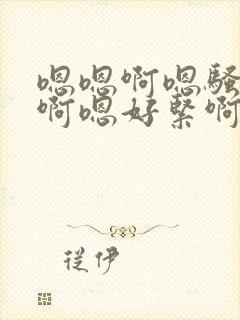 嗯嗯啊嗯骚
啊嗯好紧啊
从伊